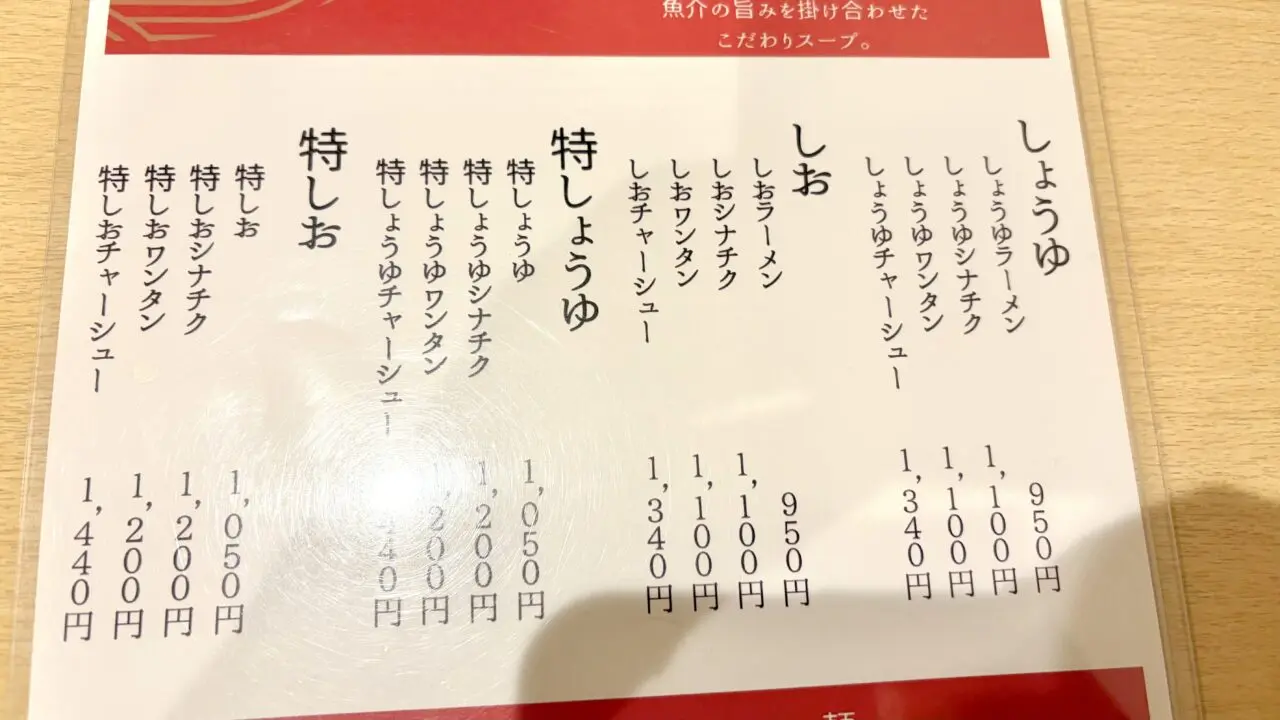 魚介の旨みを掛け合わせた
こだわりスープ。
しょうゆ
しょうゆラーメン 950円
しょうゆシナチク 1,100円
しょうゆワンタン 1,100円
しょうゆチャーシュー 1,340円
しお
しおラーメン 950円
しおシナチク 1,100円
しおワンタン 1,100円
しおチャーシュー 1,340円
特しょうゆ
特しょうゆ 1,050円
特しょうゆシナチク 1,200円
特しょうゆワンタン 1,200円
特しょうゆチャーシュー
特しお
特しお 1,050円
特しおシナチク 1,200円
特しおワンタン 1,200円
特しおチャーシュー 1,440円